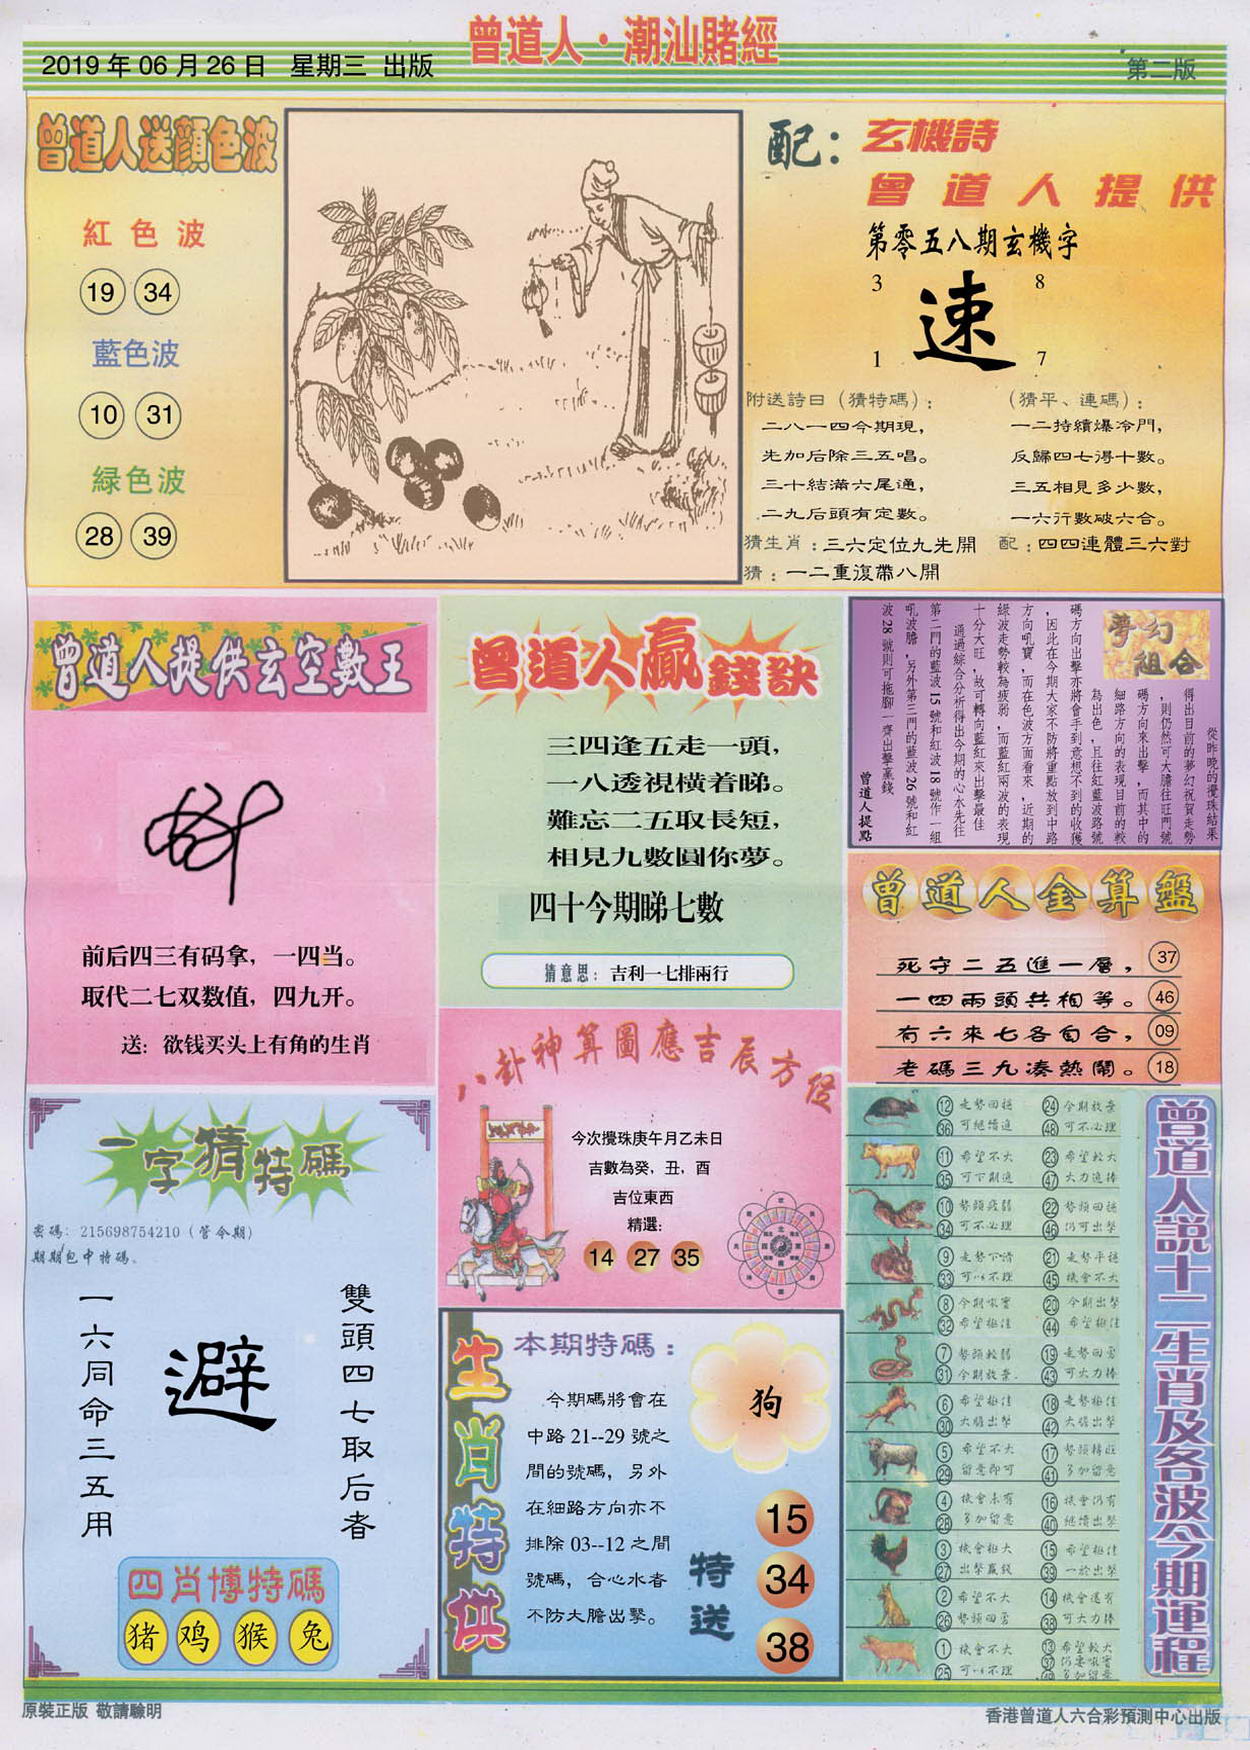 曾道人·潮汕賭經
2019 年 06 月 26 日 星期三 出版
第二版
曾道人送顔色波
紅色波
19 34
藍色波
10 31
緑色波
28 39
配：玄機詩
曾道人提供
第零五八期玄機字
3 8
速
1 7
附送詩曰（猜特碼）：
二八一四今期現，
先加后除三五唱。
三十結滿六尾通，
二九后頭有定數。
（猜平、連碼）：
一二持續爆冷門，
反歸四七得十數。
三五相見多少數，
一六行數破六合。
猜生肖：三六定位九先開 配：四四連體三六對
猜：一二重復帶八開
曾道人提供玄空數王
前后四三有码拿，一四当。
取代二七双数值，四九开。
送：欲钱买头上有角的生肖
曾道人贏錢訣
三四逢五走一頭，
一八透視橫着睇。
難忘二五取長短，
相見九數圓你夢。
四十今期睇七數
猜意思：吉利一七排兩行
夢幻
組合
從昨晚的攪珠結果
得出目前的夢幻祝賀走勢
，則仍然可大膽往旺門號
碼方向來出擊，而其中的
細路方向的表現目前的較
為出色，且往紅藍波路號
碼方向出擊亦將會手到意想不到的收獲
，因此在今期大家不防將重點放到中路
方向吼寶，而在色波方面看來，近期的
綠波走勢較為疲弱，而藍紅兩波的表現
十分大旺，故可轉向藍紅來出擊最佳
通過綜合分析得出今期的心水先往
第二門的藍波 15 號和紅波 18 號作一組
吼波膽，另外第三門的藍波 26 號和紅
波 28 號則可拖腳一齊出擊贏錢
曾道人提點
曾道人金算盤
死守二五進一層， 37
一四兩頭共相等。 46
有六來七各自合， 09
老碼三九湊熱鬧。 18
一字猜特碼
密碼：215698754210（管今期）
期期包中特碼。
一六同命三五用
避
雙頭四七取后者
四肖博特碼
猪 鸡 猴 兔
八卦神算圖應吉辰方位
今次攪珠庚午月乙未日
吉數為癸，丑，酉
吉位東西
精選：
14 27 35
生肖特供
本期特碼：
今期碼將會在
中路 21--29 號之
間的號碼，另外
在細路方向亦不
排除 03--12 之間
號碼，合心水者
不防大膽出擊。
狗
特送
15
34
38
曾道人説十二生肖及各波今期運程
12 走勢回穩 24 今期放棄
36 可繼續追 48 可不必理
11 希望不大 23 希望較大
35 可下期追 47 大力追捧
10 勢頭疲弱 22 勢頭回穩
34 可不必理 46 仍可出擊
9 走勢下滑 21 走勢平穩
33 可以不理 45 機會不大
8 今期吼寶 20 今期出擊
32 希望極佳 44 希望極佳
7 勢頭較弱 19 走勢回勇
31 今期放棄 43 可大力捧
6 希望極佳 18 走勢極佳
30 大膽出擊 42 大膽出擊
5 希望不大 17 勢頭轉旺
29 留意即可 41 多加留意
4 機會未有 16 機會仍有
28 多加留意 40 繼續出擊
3 機會極大 15 希望極佳
27 出擊贏錢 39 一於出擊
2 希望不大 14 機會還有
26 勢頭回勇 38 可大力捧
1 機會不大 13 希望較大
25 可以不理 37 仍要吼實
49 多加留意
原裝正版 敬請驗明
香港曾道人六合彩預測中心出版